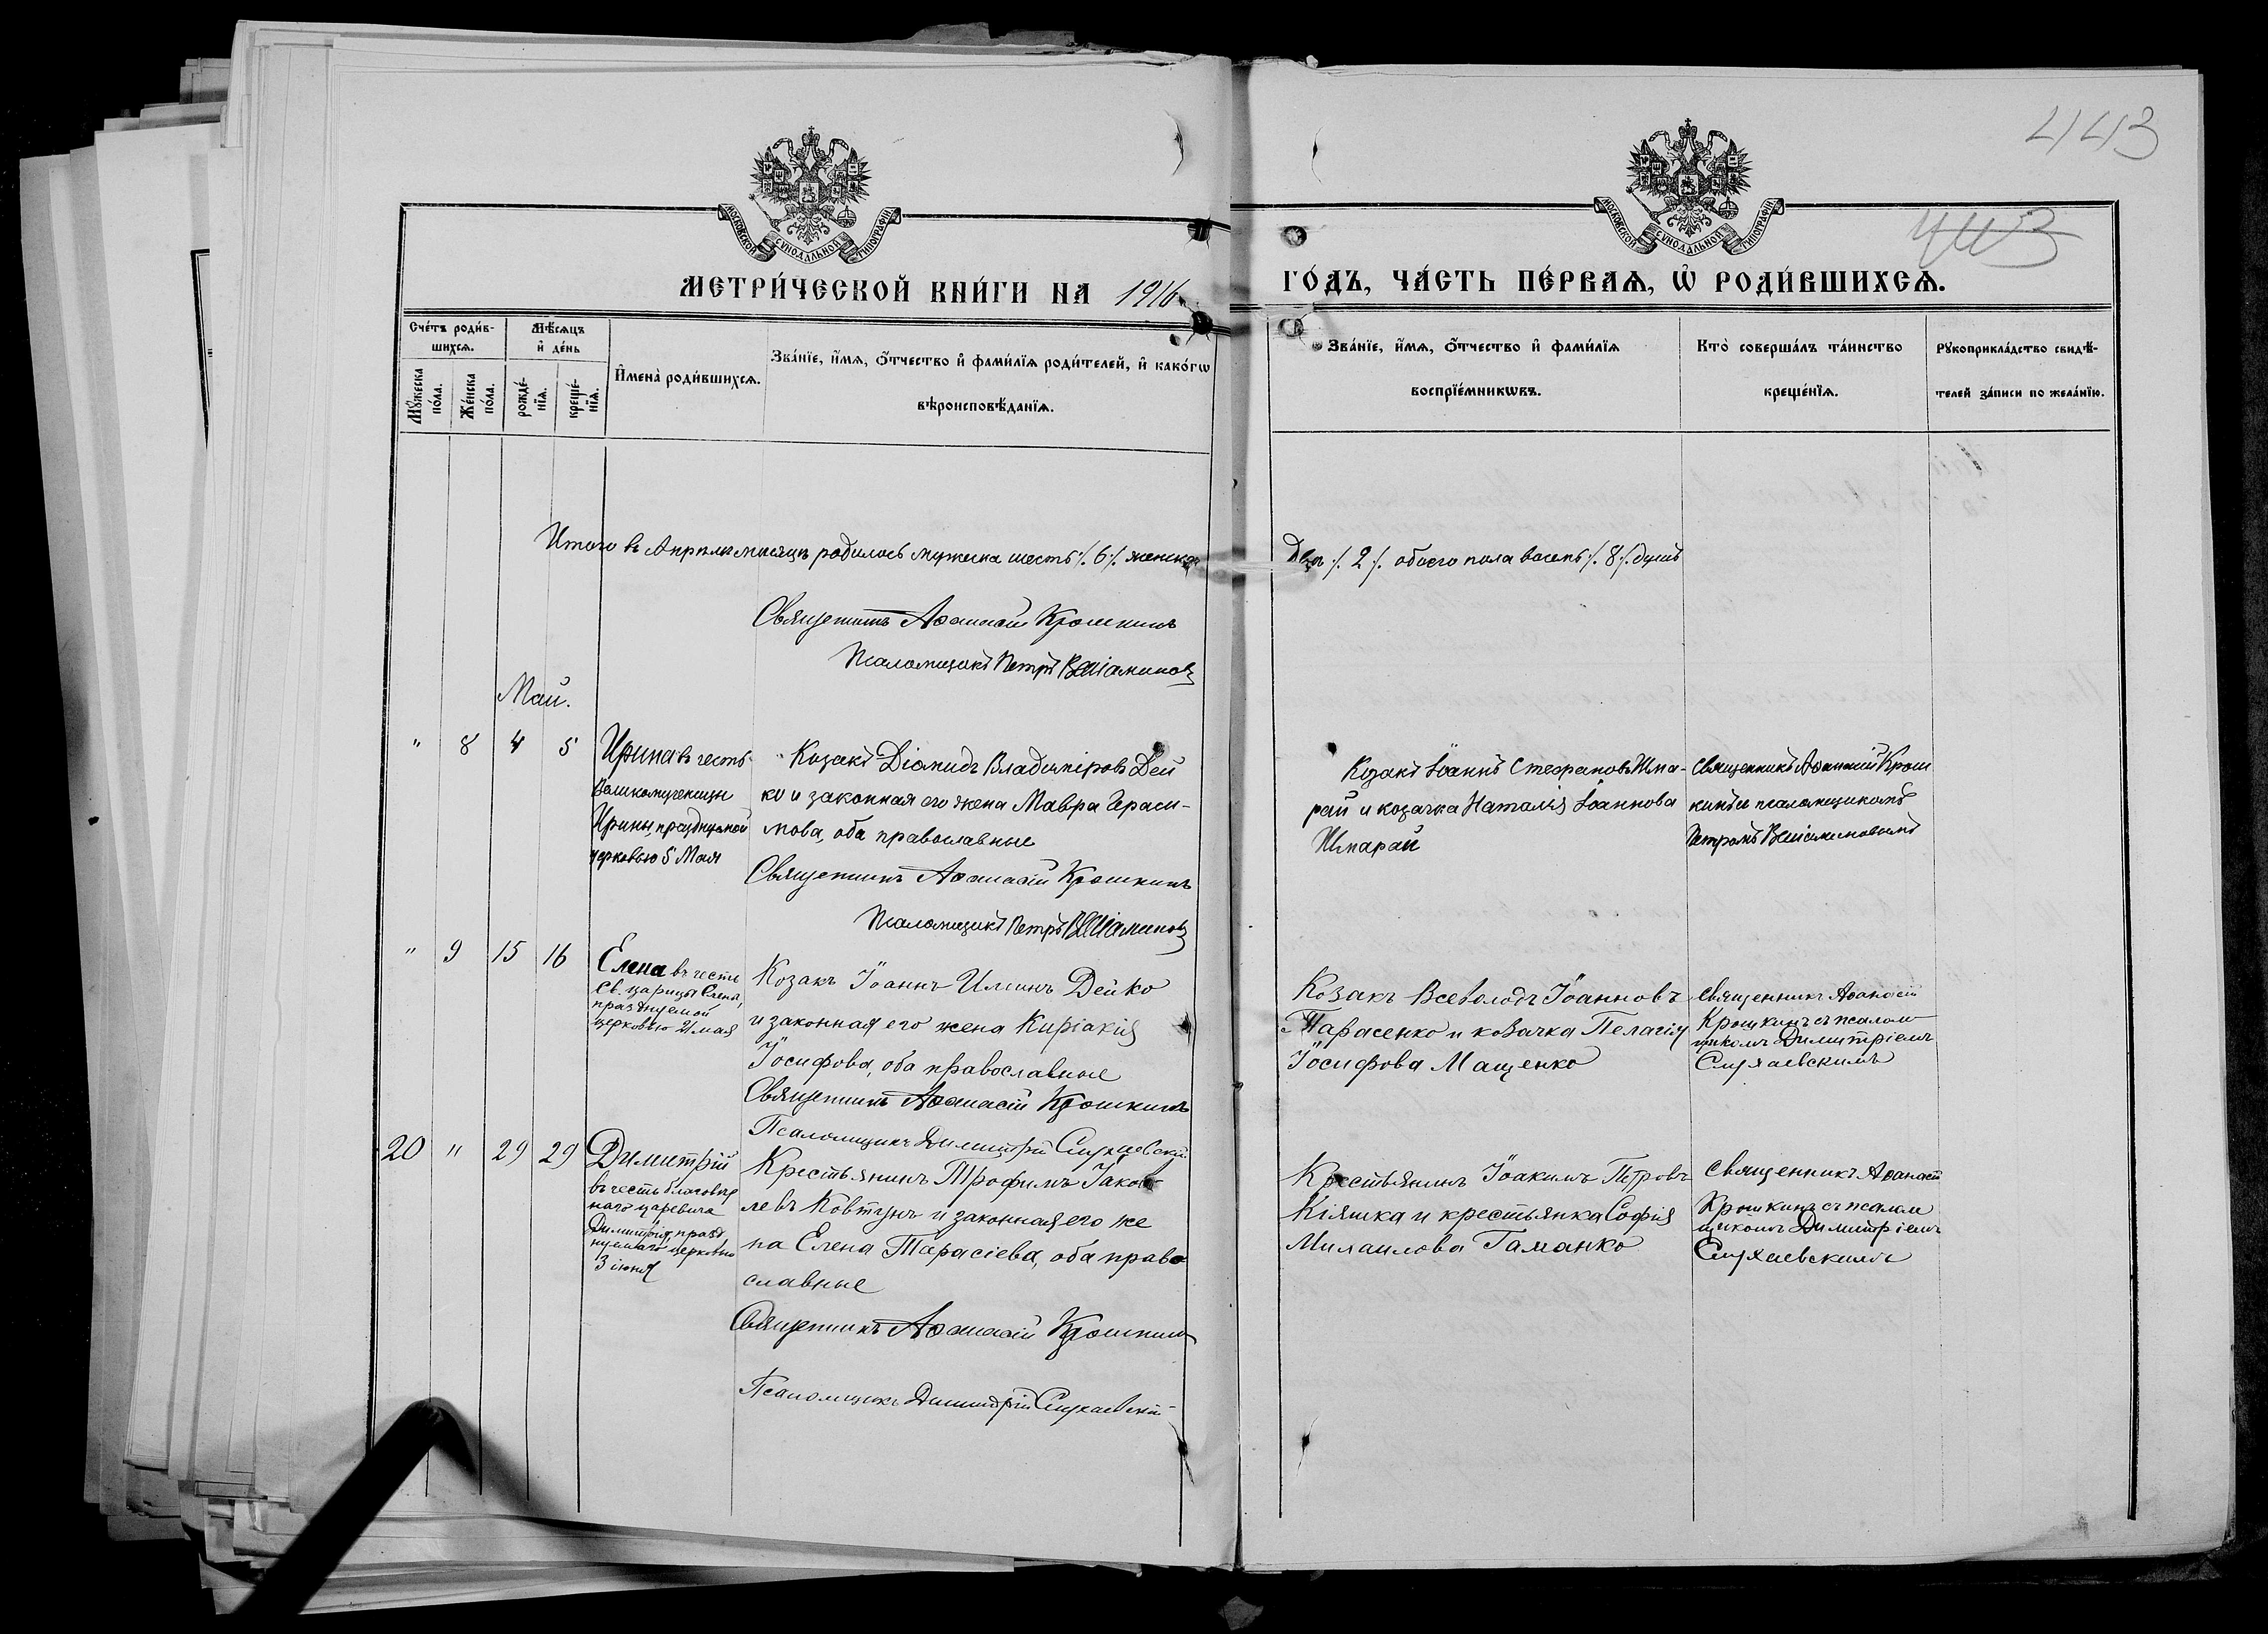 443
443
МОСКОВСКОЙ СѴНОДАЛЬНОЙ ТИПОГРАФІИ
МОСКОВСКОЙ СѴНОДАЛЬНОЙ ТИПОГРАФІИ
МЕТРИ́ЧЕСКОЙ КНИ́ГИ НА 1916
ГО́ДЪ, ЧА́СТЬ ПЕ́РВАѦ, Ѡ҆ РОДИ́ВШИХСѦ.
Сче́тъ роди́в-
шихсѧ.
Мꙋ́жеска по́ла.
Же́нска по́ла.
Мѣ́сѧцъ
и҆ де́нь
рожде́-
нїѧ.
креще́-
нїѧ.
И҆мена̀ роди́вшихсѧ.
Зва́нїе, и҆́мѧ, ѻ҆́тчество и҆ фами́лїѧ роди́телей, и҆ како́гѡ
вѣроисповѣ́данїѧ.
Зва́нїе, и҆́мѧ, ѻ҆́тчество и҆ фами́лїѧ
воспрїе́мникѡвъ.
Кто̀ соверша́лъ та́инство
креще́нїѧ.
Рꙋкоприкла́дство свидѣ́-
телей за́писи по жела́нїю.
Итого въ Апрѣлѣ мѣсяцѣ родилось мужеска шесть /. 6 /. женска
Двѣ /. 2 /. обоего пола восемь /. 8 /. душъ
Священникъ Аѳанасій Крошкинъ
Псаломщикъ Петръ Веніаминовъ
Май.
" 8 4 5
Ирина въ честь
Великомученицы
Ирины, празднуемой
церковью 5 Мая
Козакъ Діомидъ Владиміровъ Дей
ко и законная его жена Мавра Гераси-
мова, оба православные
Священникъ Аѳанасій Крошкинъ
Псаломщикъ Петръ Веніаминовъ
Козакъ Іоаннъ Стефановъ Шпа-
рай и козачка Наталія Іоаннова
Шпарай
Священникъ Аѳанасій Крош
кинъ и псаломщикомъ
Петромъ Веніаминовымъ
" 9 15 16
Елена въ честь
Св. царицы Елены,
празднуемой
церковью 21 мая
Козакъ Іоаннъ Ильинъ Дейко
и законная его жена Киріакія
Іосифова, оба православные
Священникъ Аѳанасій Крошкинъ
Псаломщикъ Димитрій
Козакъ Всеволодъ Іоанновъ
Тарасенко и козачка Пелагія
Іосифова Мащенко
Священникъ Аѳанасій
Крошкинъ съ псалом
щикомъ Димитріемъ
20 " 29 29
Димитрій
въ честь благовѣр
наго царевича
Димитрія, празд
нуемаго церковью
3 іюня
Крестьянинъ Трофимъ Іаков
левъ Ковтунъ и законная его же
на Елена Тарасіева, оба право
славные
Священникъ Аѳанасій Крошкинъ
Псаломщикъ Димитрій
Крестьянинъ Іоакимъ Петровъ
Кіяшка и крестьянка Софія
Михаилова Гаманко
Священникъ Аѳанасій
Крошкинъ съ псалом
щикомъ Димитріемъ